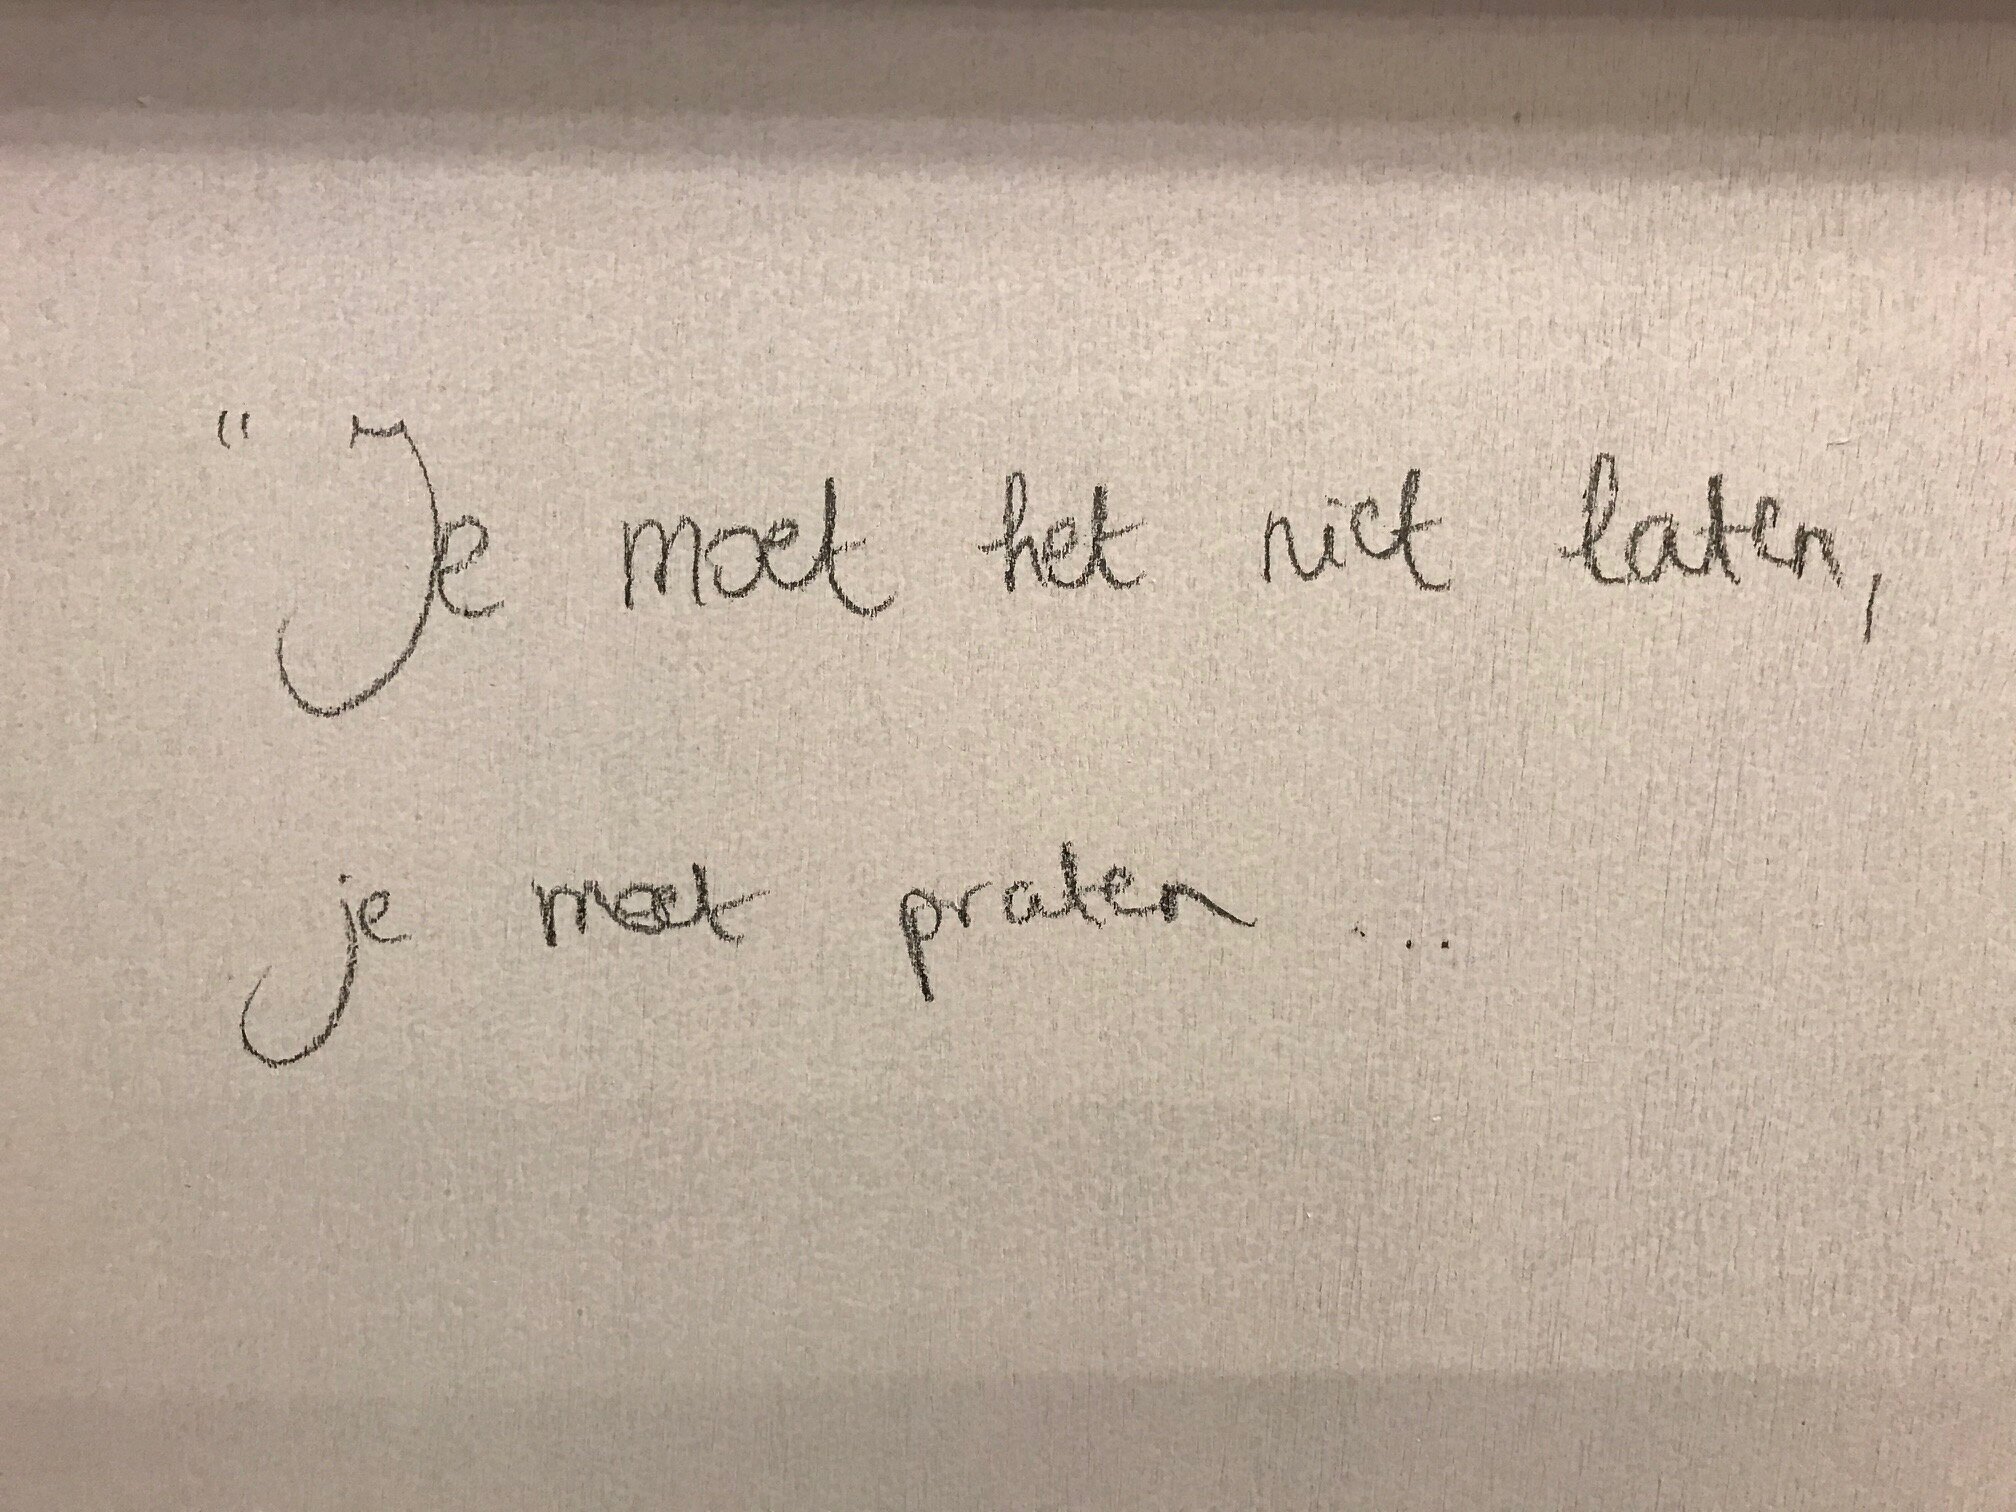 " Je moet het niet laten,
je moet praten ...